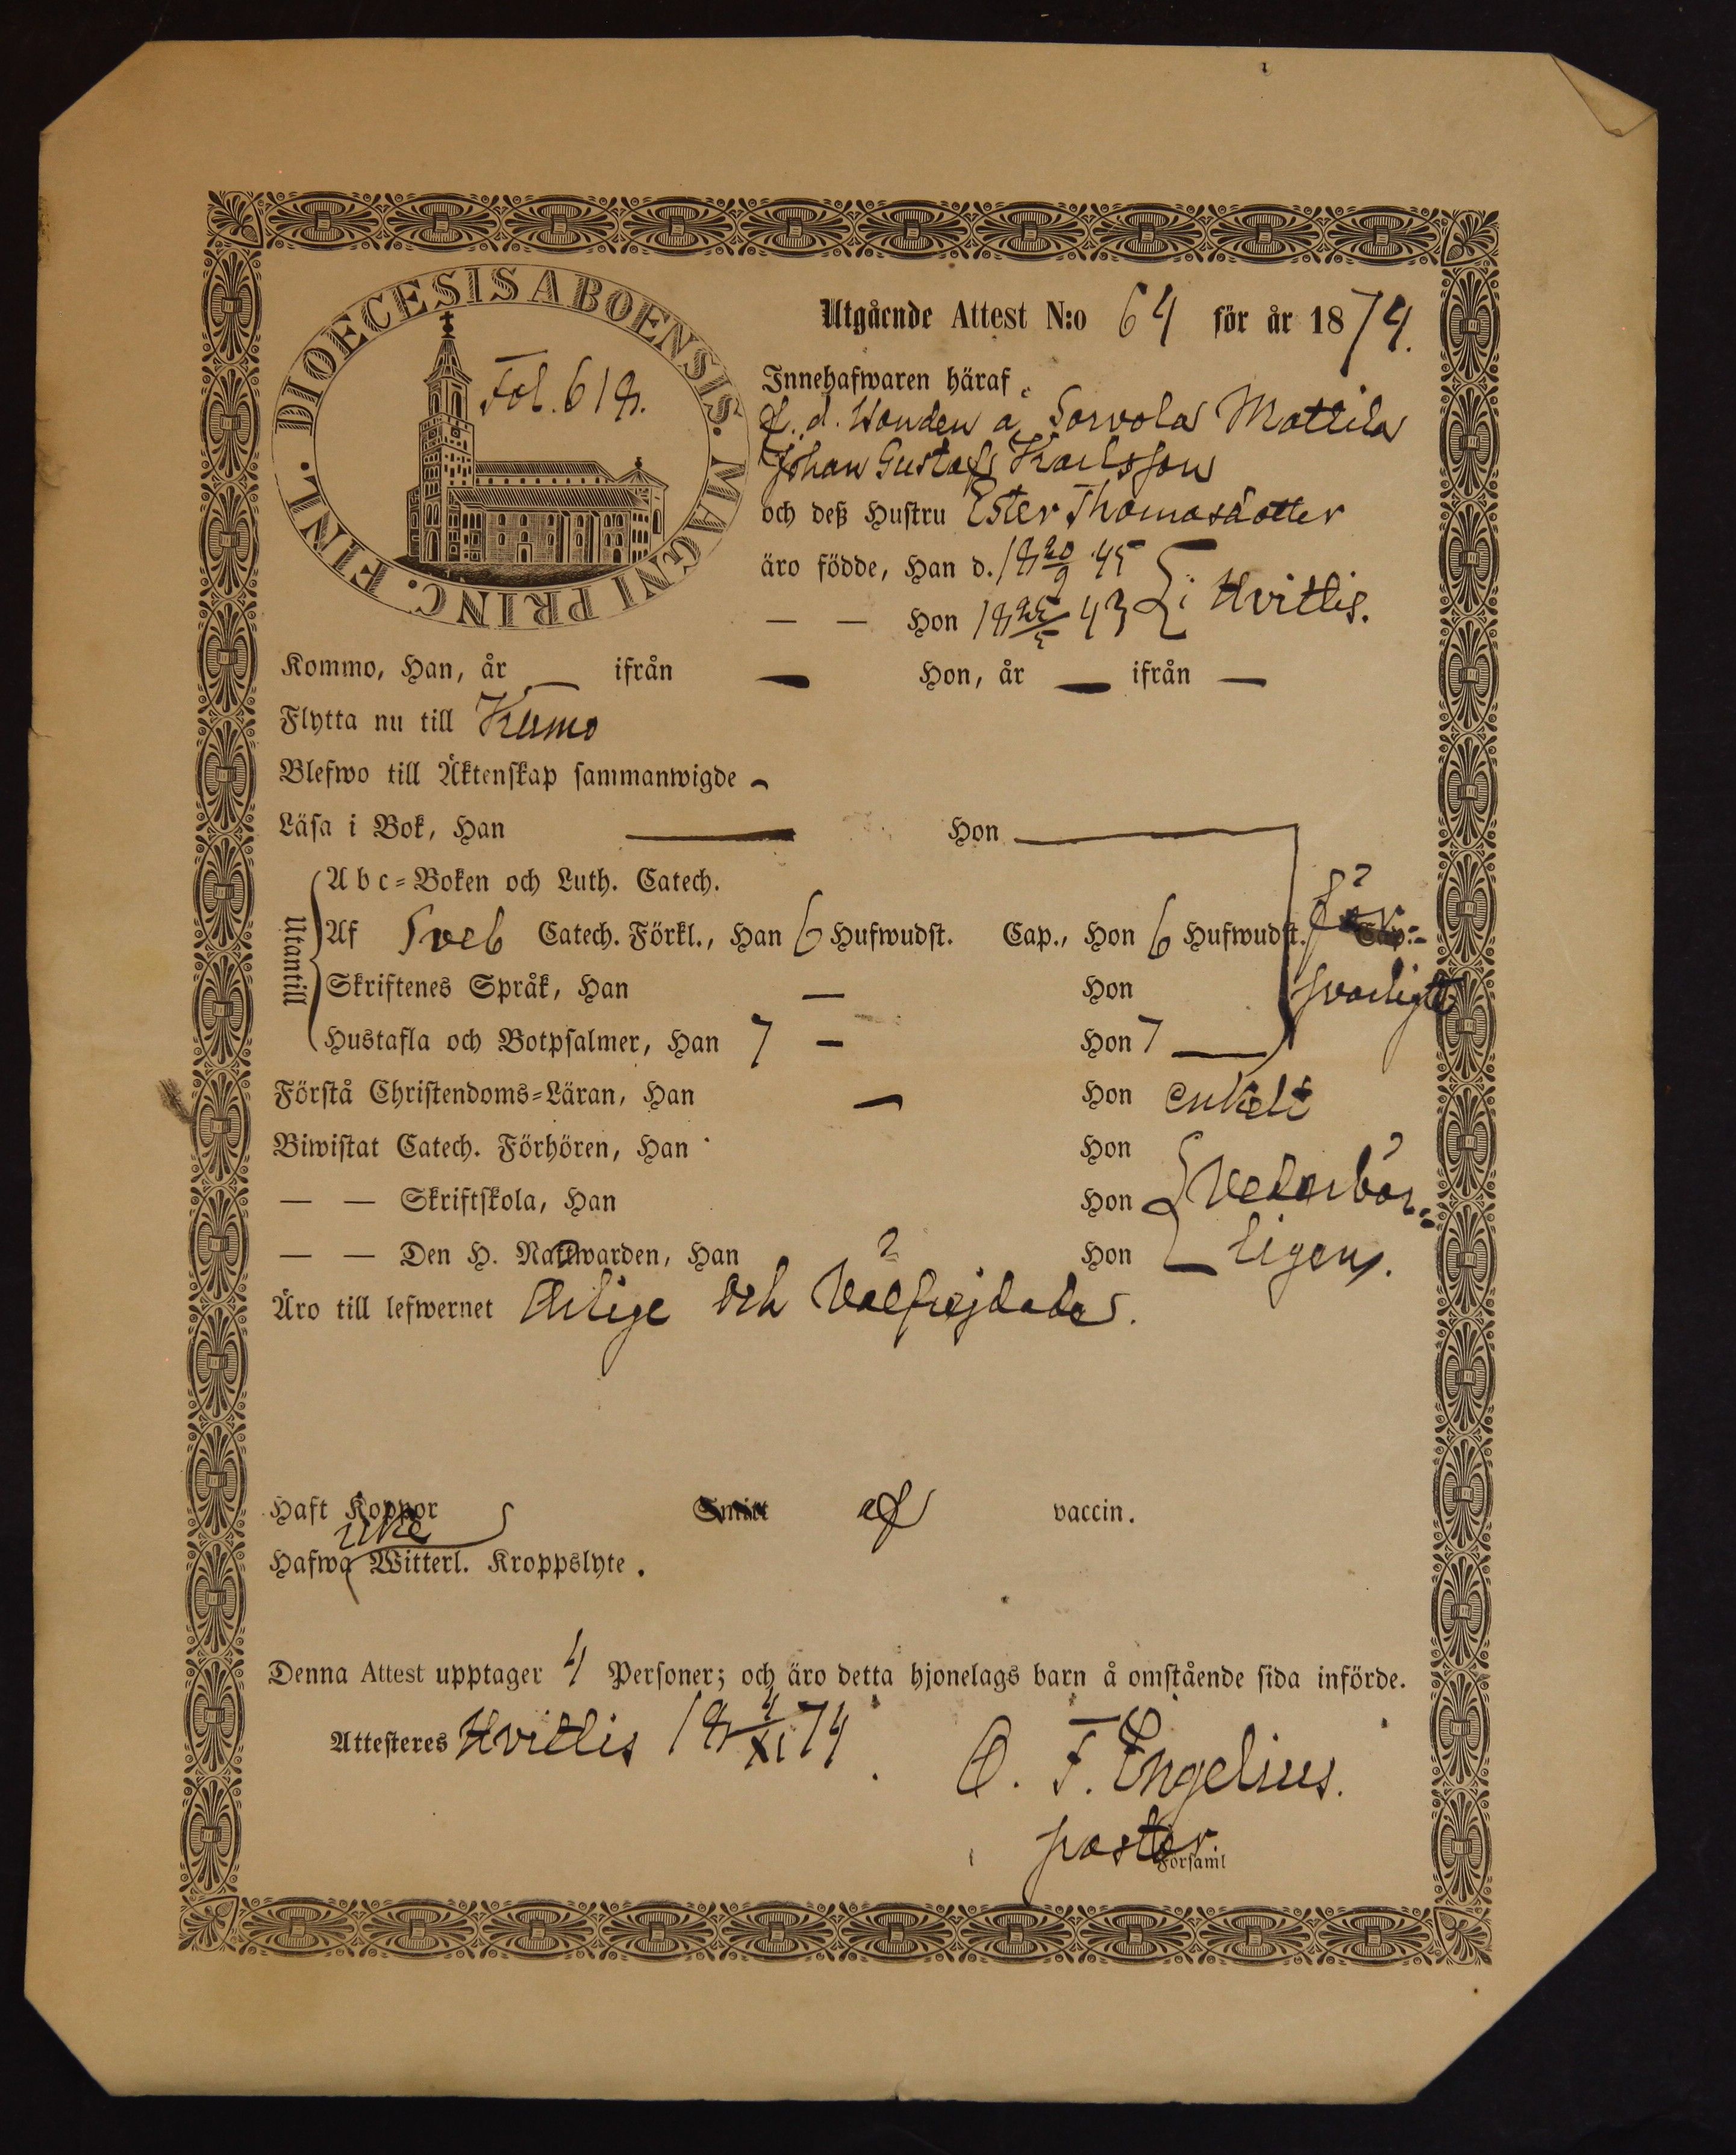 DIOECESIS ABOENSIS. MAGNI PRINC. FINL.
Fol. 618.
Utgående Attest N:o 64 för år 1874.
Innehafwaren häraf
f. d. Bonden å Sorvola Mattila
Johan Gustaf Karlsson
och deß Hustru Ester Thomasdotter
äro födde, Han d. 18 20/9 45
— — Hon 18 25/5 43 i Hvittis.
Kommo, Han, år — ifrån — Hon, år — ifrån —
Flytta nu till Kumo
Blefwo till Äktenskap sammanwigde -
Läsa i Bok, Han — Hon —
Utantill
Abc-Boken och Luth. Catech.
Af Sveb Catech. Förkl., Han 6 Hufwudst. Cap., Hon 6 Hufwudst. för-
Skriftenes Språk, Han — Hon svarligt
Hustafla och Botpsalmer, Han 7 — Hon 7 —
Förstå Christendoms-Läran, Han — Hon enkelt
Biwistat Catech. Förhören, Han Hon
— — Skriftskola, Han Hon Vederbör-
— — Den H. Nattwarden, Han Hon ligen.
Äro till lefwernet Ärlige och Välfrejdade.
Haft Koppor af vaccin.
icke
Hafwa Witterl. Kroppslyte.
Denna Attest upptager 4 Personer; och äro detta hjonelags barn å omstående sida införde.
Attesteres Hvittis 18 4/XI 74.
F. Engelius.
pastor.
Församl